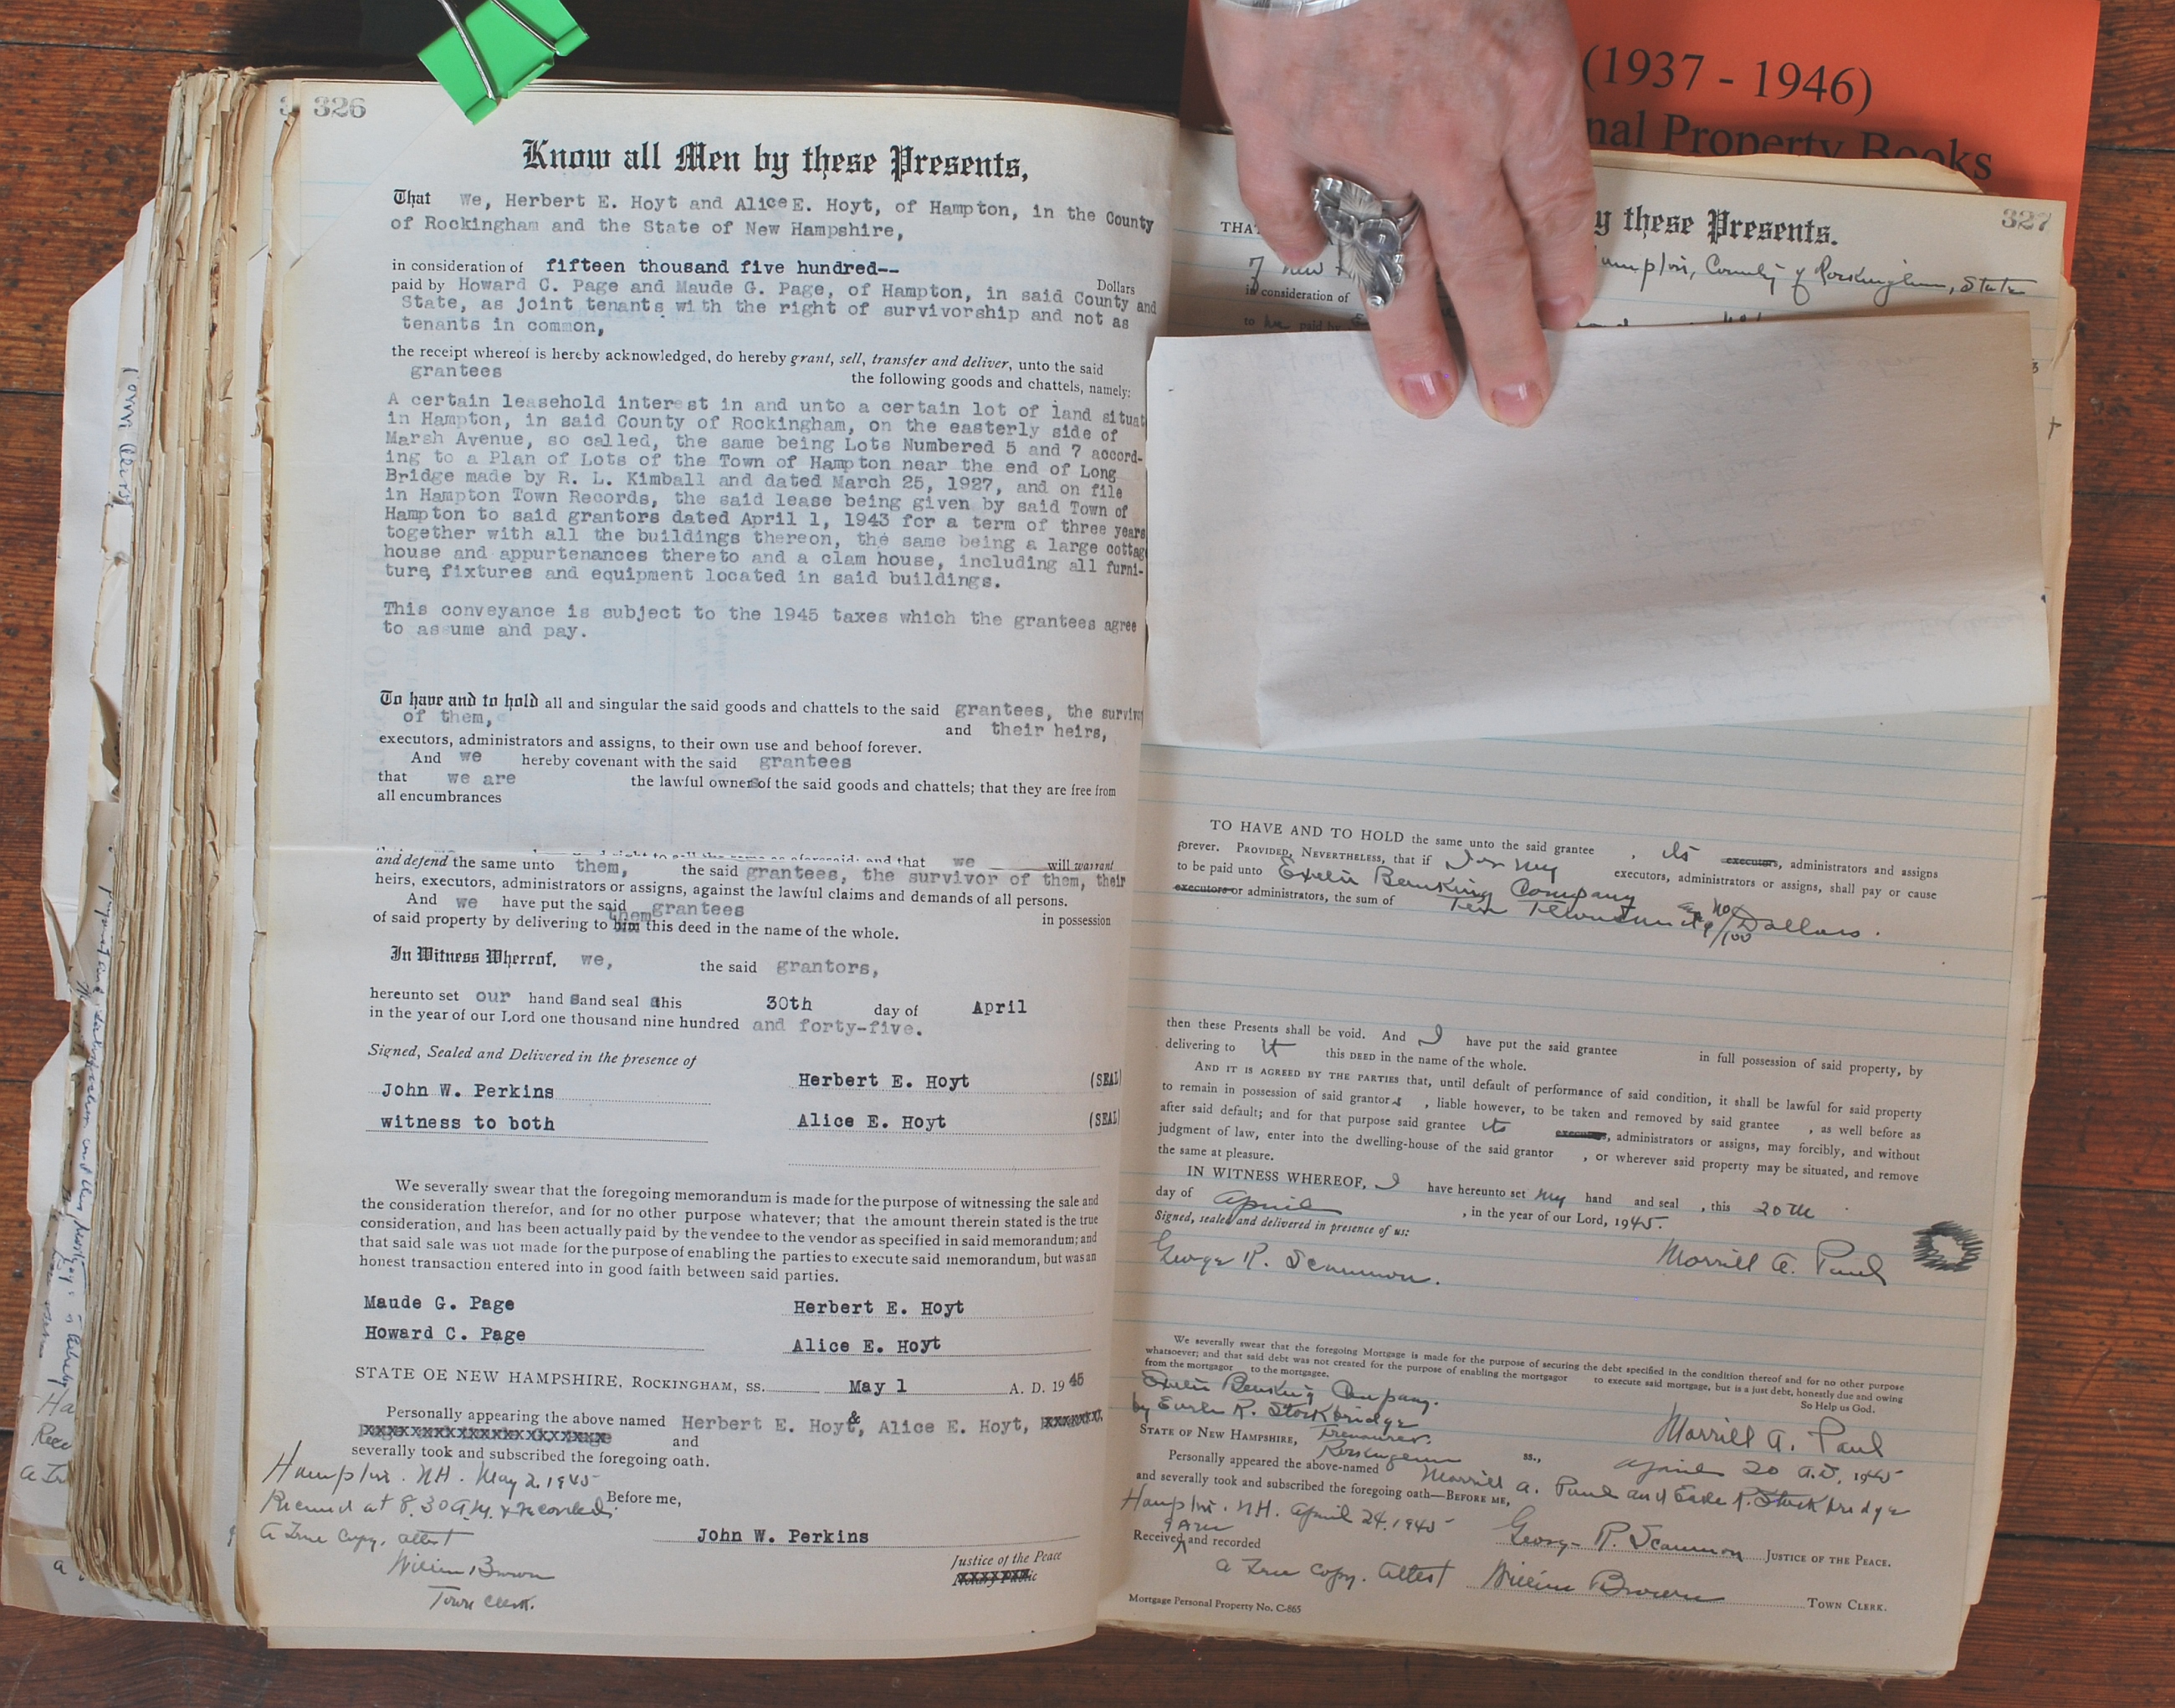 326
Know all Men by these Presents,
That we, Herbert E. Hoyt and Alice E. Hoyt, of Hampton, in the County
of Rockingham and the State of New Hampshire,
in consideration of fifteen thousand five hundred--
Dollars
paid by Howard C. Page and Maude G. Page, of Hampton, in said County and
State, as joint tenants with the right of survivorship and not as
tenants in common,
the receipt whereof is hereby acknowledged, do hereby grant, sell, transfer and deliver, unto the said
grantees the following goods and chattels, namely:
A certain leasehold interest in and unto a certain lot of land situat
in Hampton, in said County of Rockingham, on the easterly side of
Marsh Avenue, so called, the same being Lots Numbered 5 and 7 accord-
ing to a Plan of Lots of the Town of Hampton near the end of Long
Bridge made by R. L. Kimball and dated March 25, 1927, and on file
in Hampton Town Records, the said lease being given by said Town of
Hampton to said grantors dated April 1, 1943 for a term of three years
together with all the buildings thereon, the same being a large cottag
house and appurtenances thereto and a clam house, including all furni-
ture, fixtures and equipment located in said buildings.
This conveyance is subject to the 1945 taxes which the grantees agree
to as ume and pay.
To have and to hold all and singular the said goods and chattels to the said grantees, the survivo
of them, and their heirs,
executors, administrators and assigns, to their own use and behoof forever.
And we hereby covenant with the said grantees
that we are the lawful owners of the said goods and chattels; that they are free from
all encumbrances
and that we will warrant
and defend the same unto them, the said grantees, the survivor of them, their
heirs, executors, administrators or assigns, against the lawful claims and demands of all persons.
And we have put the said grantees in possession
of said property by delivering to him them this deed in the name of the whole.
In Witness Whereof, we, the said grantors,
hereunto set our hand s and seal s this 30th day of April
in the year of our Lord one thousand nine hundred and forty-five.
Signed, Sealed and Delivered in the presence of
John W. Perkins Herbert E. Hoyt (SEAL)
witness to both Alice E. Hoyt (SEAL)
We severally swear that the foregoing memorandum is made for the purpose of witnessing the sale and
the consideration therefor, and for no other purpose whatever; that the amount therein stated is the true
consideration, and has been actually paid by the vendee to the vendor as specified in said memorandum; and
that said sale was not made for the purpose of enabling the parties to execute said memorandum, but was an
honest transaction entered into in good faith between said parties.
Maude G. Page Herbert E. Hoyt
Howard C. Page Alice E. Hoyt
STATE OE NEW HAMPSHIRE, ROCKINGHAM, SS. May 1 A. D. 19 45
Personally appearing the above named Herbert E. Hoyt & Alice E. Hoyt,
and
severally took and subscribed the foregoing oath.
Hampton. N.H. May 2. 1945
Before me,
Received at 8.30 A.M. & recorded.
A True Copy. attest
John W. Perkins
William Brown
Justice of the Peace
Town Clerk.
(1937 - 1946)
nal Property Books
327
y these Presents.
THA
ampton, County of Rockingham, State
of New
in consideration of
to paid by
TO HAVE AND TO HOLD the same unto the said grantee , its executors, administrators and assigns
forever. PROVIDED, NEVERTHELESS, that if I or my executors, administrators or assigns, shall pay or cause
to be paid unto Exeter Banking Company
executors or administrators, the sum of Ten Thousand and no/100 Dollars.
then these Presents shall be void. And I have put the said grantee in full possession of said property, by
delivering to it this DEED in the name of the whole.
AND IT IS AGREED BY THE PARTIES that, until default of performance of said condition, it shall be lawful for said property
to remain in possession of said grantor , liable however, to be taken and removed by said grantee , as well before as
after said default; and for that purpose said grantee its executors, administrators or assigns, may forcibly, and without
judgment of law, enter into the dwelling-house of the said grantor , or wherever said property may be situated, and remove
the same at pleasure.
IN WITNESS WHEREOF, I have hereunto set my hand and seal , this 20th
day of April , in the year of our Lord, 1945.
Signed, sealed and delivered in presence of us:
George R. Scammon. Morrill A. Paul
We severally swear that the foregoing Mortgage is made for the purpose of securing the debt specified in the condition thereof and for no other purpose
whatsoever; and that said debt was not created for the purpose of enabling the mortgagor to execute said mortgage, but is a just debt, honestly due and owing
from the mortgagor to the mortgagee. So Help us God.
Exeter Banking Company.
by Earle R. Stockbridge
Treasurer.
Morrill A. Paul
STATE OF NEW HAMPSHIRE, Rockingham ss., April 20 A.D. 1945
Personally appeared the above-named Morrill A. Paul and Earle R. Stockbridge
and severally took and subscribed the foregoing oath—BEFORE ME,
Hampton. N.H. April 24. 1945
George R. Scammon JUSTICE OF THE PEACE.
9 AM
Received and recorded
A True Copy. Attest William Brown TOWN CLERK.
Mortgage Personal Property No. C-865